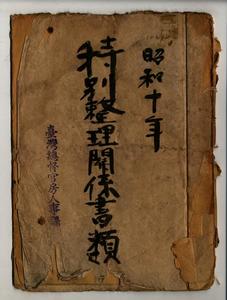 昭和十年
特別整理關係書類
臺灣總督官房人事課